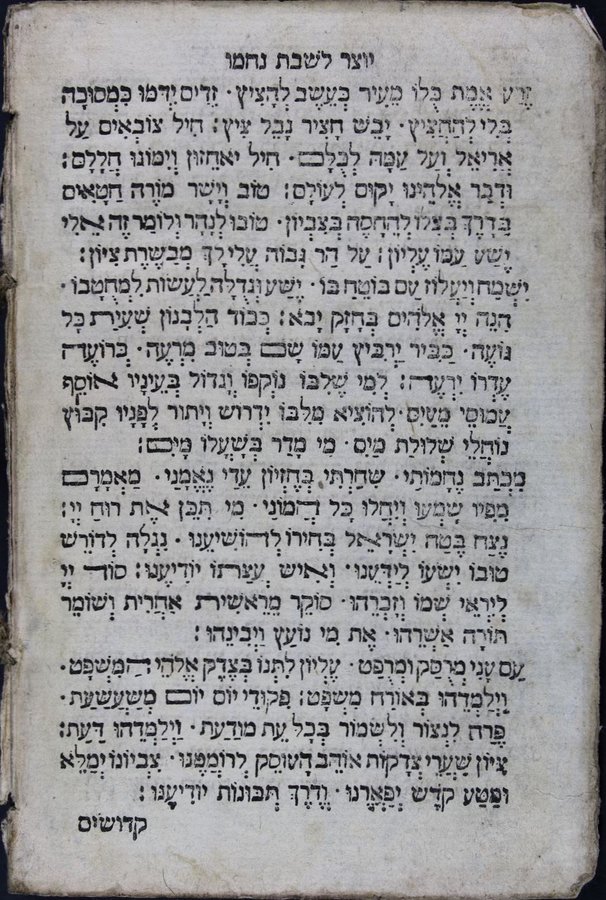 יוצר לשבת נחמו
זֶרַע אֱמֶת כֻּלּוֹ מֵעִיר כְּעֵשֶׂב לְהָצִיץ· זֵדִים יִדְּמוּ כִּמְסוּכָה
בְּלִי לְהַחֲצִיץ· יָבֵשׁ חָצִיר נָבֵל צִיץ: חַיִל צוֹבְאִים עַל
אֲרִיאֵל וְעַל עַמָּהּ לְכֻלָּם· חִיל יֹאחֵזוּן וְיִמּוֹנוּ חֲלָלָם:
וּדְבַר אֱלֹהֵינוּ יָקוּם לְעוֹלָם: טוֹב וְיָשָׁר מוֹרֶה חַטָּאִים
בַּדֶּרֶךְ בְּצִלּוֹ לְהֵחָסֶה בְּצִבְיוֹן· טוּבוֹ לְנַהֵר וְלוֹמַר זֶה אֵלִי
יֶשַׁע עַמּוֹ עֶלְיוֹן: עַל הַר גָּבוֹהַּ עֲלִי לָךְ מְבַשֶּׂרֶת צִיּוֹן:
יִשְׂמַח וְיַעֲלוֹז עַם בּוֹטֵחַ בּוֹ· יֶשַׁע וּגְדֻלָּה לַעֲשׂוֹת לִמְחֻטָּבוֹ·
הִנֵּה יְיָ אֱלֹהִים בְּחָזָק יָבֹא: כְּבוֹד הַלְּבָנוֹן שְׂעִירַת כָּל
נוֹעָה· כַּבִּיר יַרְבִּיץ עַמּוֹ שָׁם בְּטוּב מִרְעֶה· כְּרוֹעֶה
עֶדְרוֹ יִרְעֶה: לְמִי שֶׁלִּבּוֹ נוֹקְפוֹ וְגָדוֹל בְּעֵינָיו אוֹסֵף
עֲמוּסֵי מֵעַיִם· לְהוֹצִיא מִלִּבּוֹ יִדְרוֹשׁ וְיָתוּר לְפָנָיו קִבּוּץ
נוֹחֲלֵי שְׁלוּלַת מַיִם· מִי מָדַד בְּשָׁעֳלוֹ מַיִם:
מִכְתַּב נֶחָמוֹתַי· שִׁחַרְתִּי בְּחֶזְיוֹן עֵדַי נֶאֱמָנַי· מַאֲמָרָם
מִפִּיו שָׁמְעוּ וְיִחֲלוּ כָּל הֲמוֹנַי· מִי תִכֵּן אֶת רוּחַ יְיָ:
נֶצַח בָּטַח יִשְׂרָאֵל בְּחִירוֹ לְהוֹשִׁיעֵנוּ· נִגְלָה לְדוֹרֵשׁ
טוּבוֹ יִשְׁעוֹ לְיַדְּעֵנוּ· וְאִישׁ עֲצָתוֹ יוֹדִיעֶנּוּ: סוֹד יְיָ
לִירֵאֵי שְׁמוֹ וְזִכְרֵהוּ· סוֹקֵר מֵרֵאשִׁית אַחֲרִית וְשׁוֹמֵר
תּוֹרָה אַשְׁרֵהוּ· אֶת מִי נוֹעָץ וַיְבִינֵהוּ:
עַם עָנִי מְרֻסָּק וּמְרֻפָּט· עֶלְיוֹן לִתְּנוֹ בְּצֶדֶק אֱלֹהֵי הַמִּשְׁפָּט·
וַיְלַמְּדֵהוּ בְּאוֹרַח מִשְׁפָּט: פִּקּוּדֵי יוֹם יוֹם מְשַׁעֲשַׁעַת·
פָּרָה לִנְצוֹר וְלִשְׁמוֹר בְּכָל עֵת מוֹדַעַת· וַיְלַמְּדֵהוּ דָעַת:
צִיּוֹן שַׁעֲרֵי צְדָקוֹת אוֹהֵב הָעוֹסֵק לְרוֹמְמֵנוּ· צִבְיוֹנוֹ יְמַלֵּא
וּמַטַּע קֹדֶשׁ יְפָאֲרֶנּוּ· וְדֶרֶךְ תְּבוּנוֹת יוֹדִיעֶנּוּ:
קדושים